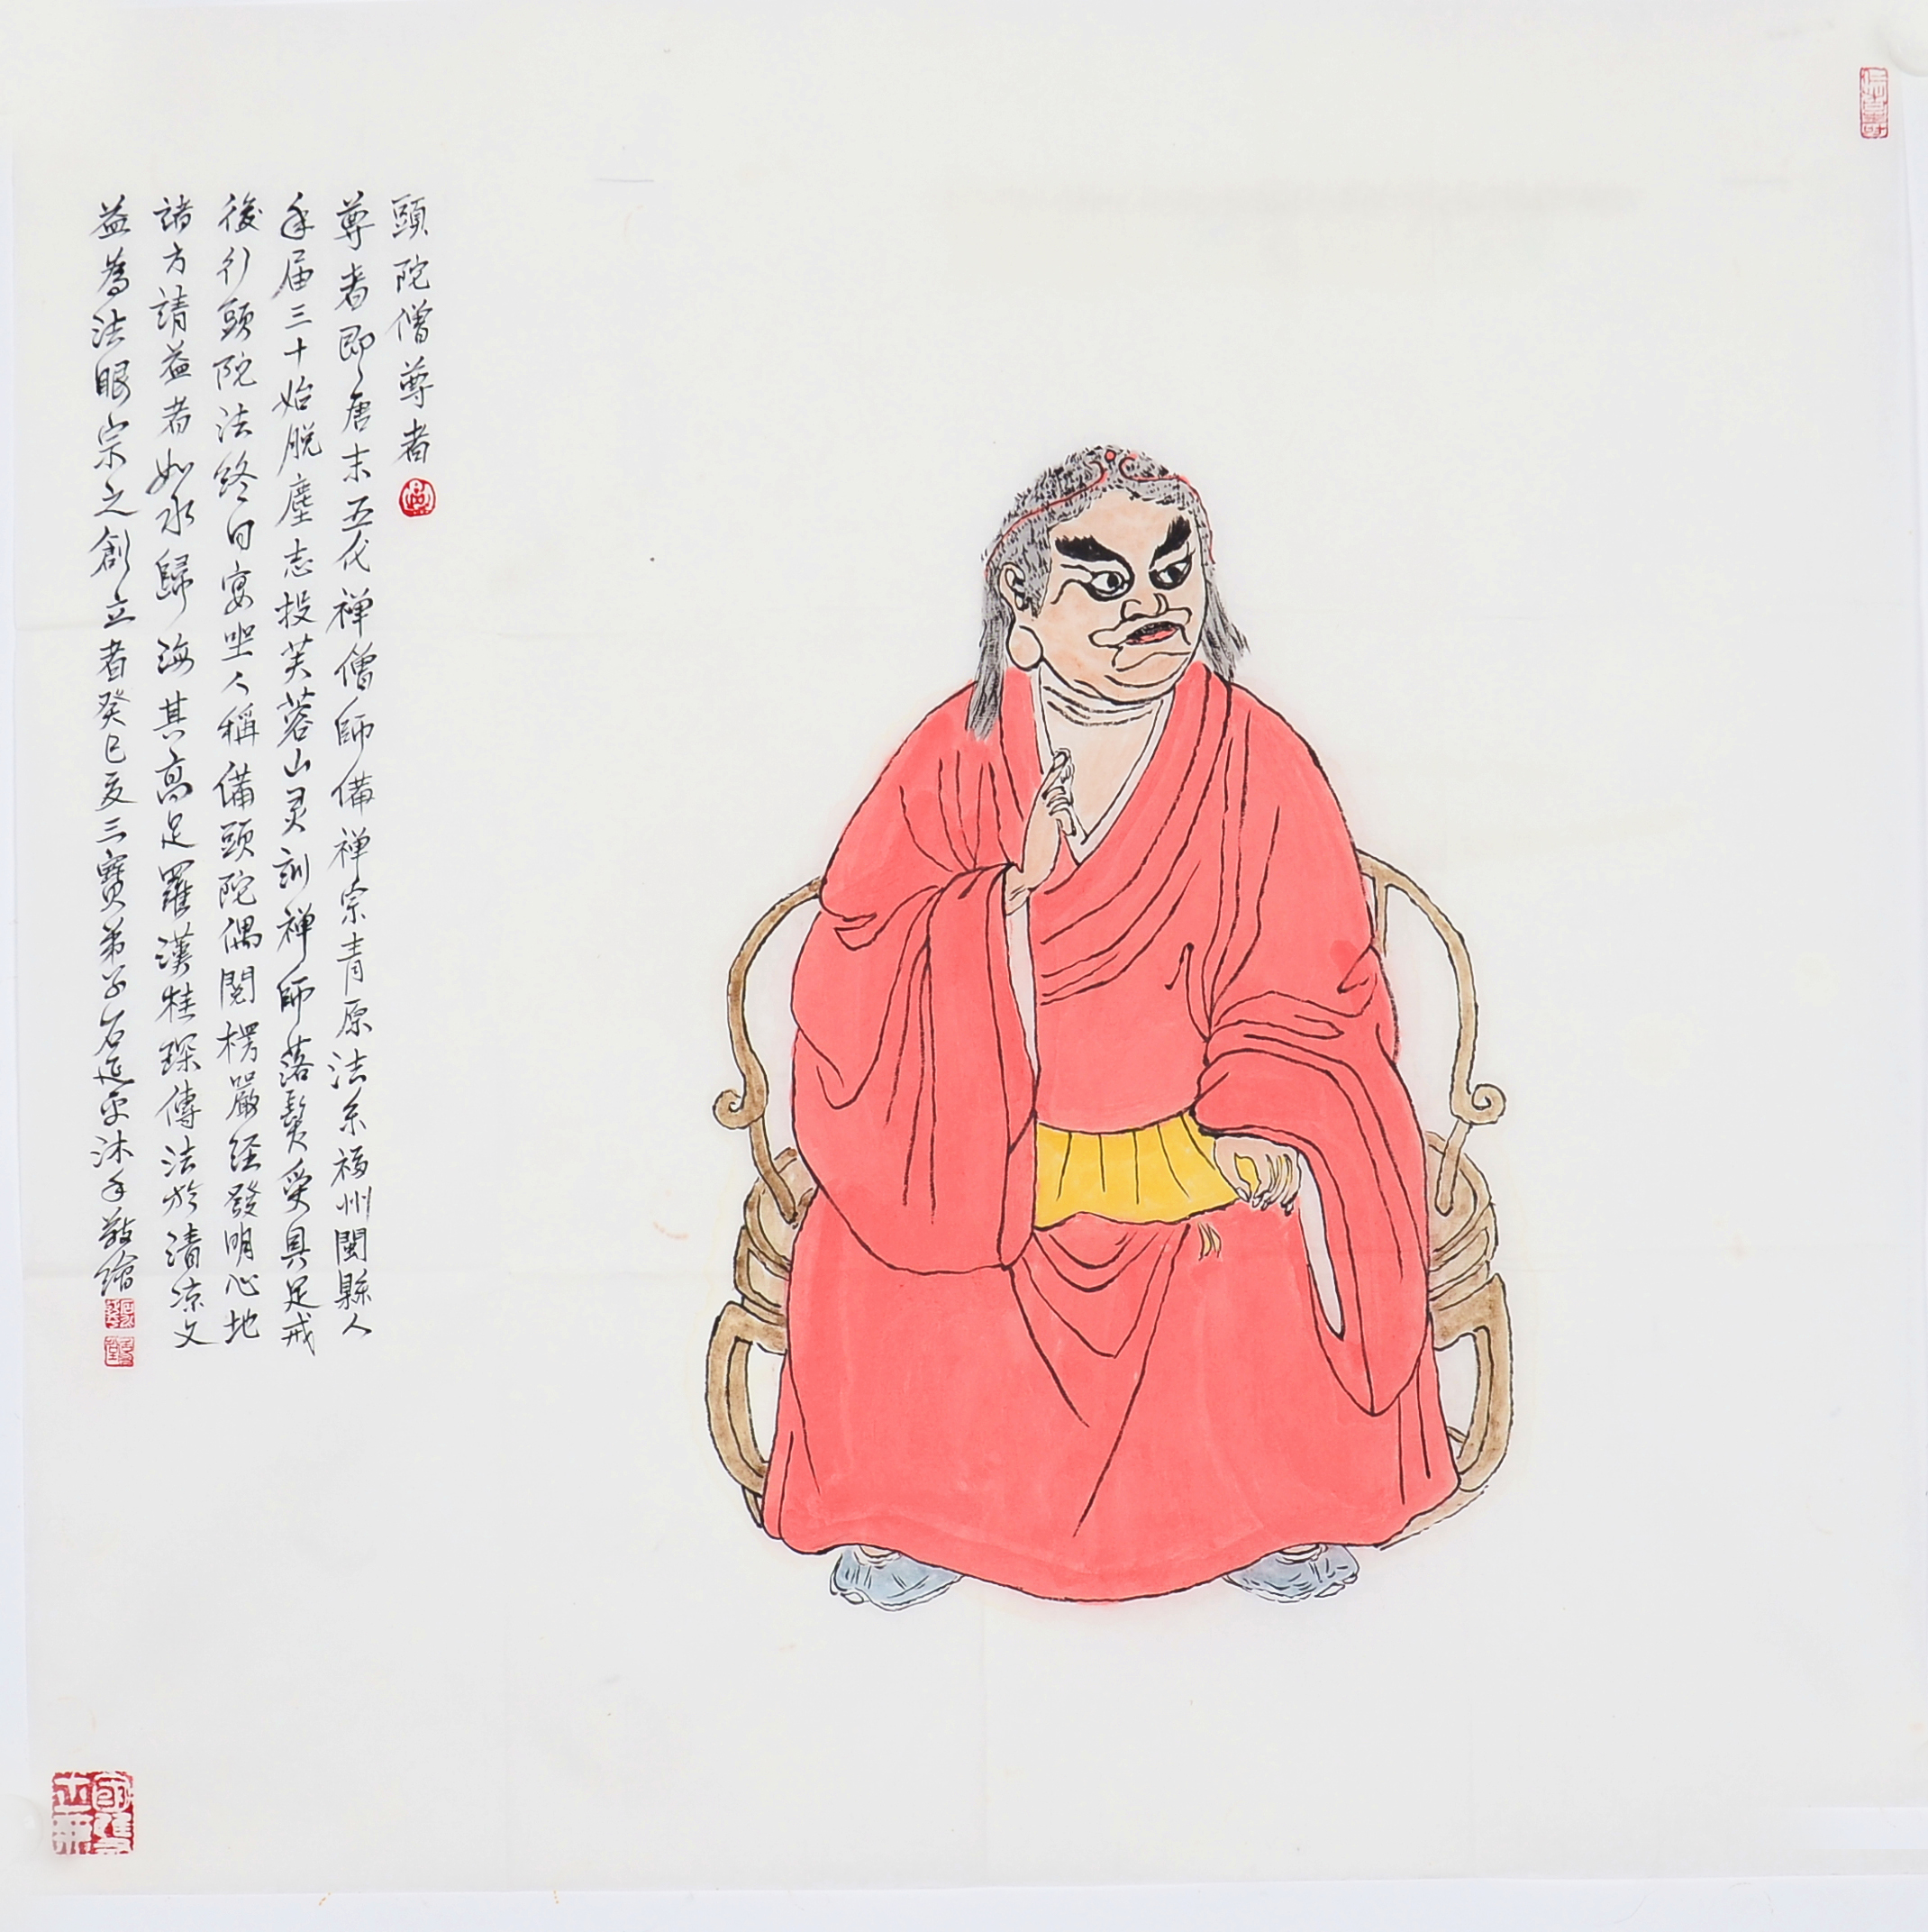 頭陀僧尊者
尊者即唐末五代禅僧師備禅宗青原法系福州閩縣人
年届三十始脱塵志投芙蓉山灵訓禅師落髮受具足戒
後行頭陀法終日宴坐人稱備頭陀偶閱楞嚴经發明心地
諸方請益者如水歸海其高足羅漢桂琛傳法於清凉文
益為法眼宗之創立者癸巳夏三寶弟子石延平沐手敬绘